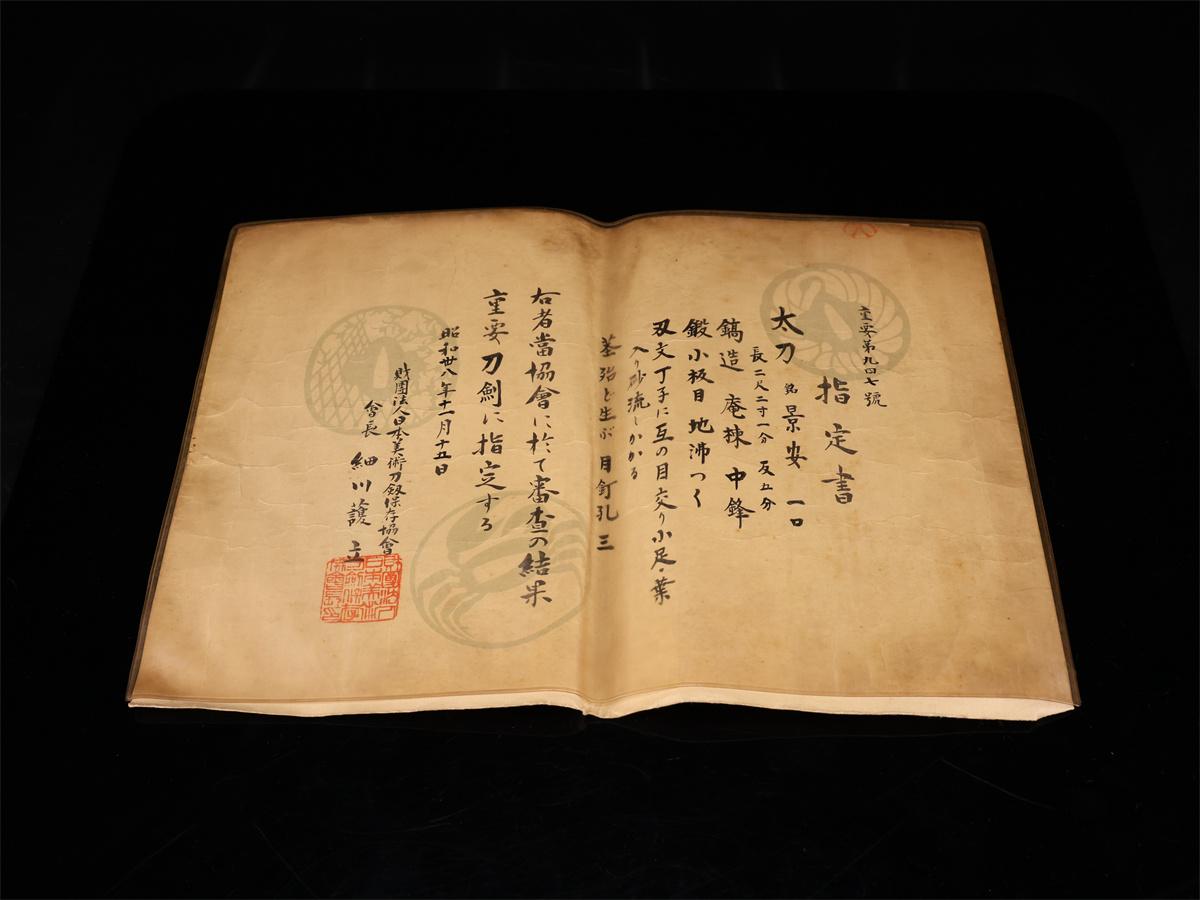 重要第九四七號
指定書
太刀 銘 景安 一口
長二尺二寸一分 反五分
鎬造 庵棟 中鋒
鍛 小板目 地沸つく
刃文 丁子に互の目交り小足・葉
入り砂流しかかる
茎 殆ど生ぶ 目釘孔三
右者當協會に於て審査の結果
重要刀劍に指定する
昭和卅八年十一月十五日
財團法人日本美術刀劔保存協會
會長 細川護立